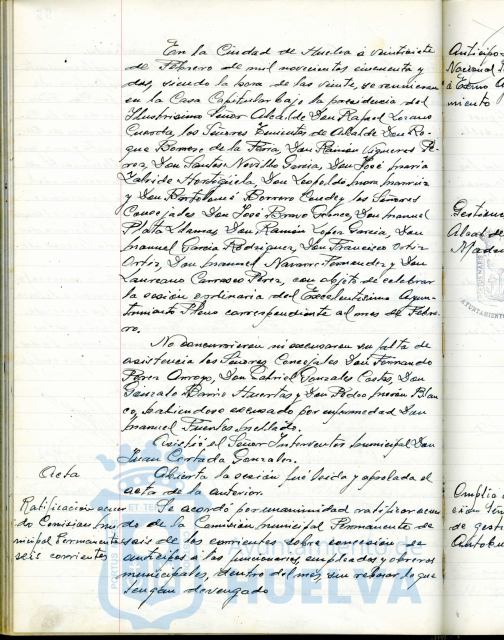 En la Ciudad de Huelva a veintisiete
de Febrero de mil novecientos cincuenta y
dos, siendo la hora de las veinte, se reunieron
en la Casa Capitular bajo la presidencia del
Ilustrisimo Señor Alcalde Don Rafael Lozano
Cuerda, los Señores Tenientes de Alcalde Don Ro-
que Borrero de la Feria, Don Ramón Vizueres Pé-
rez, Don Santos Novillo Garcia, Don José Maria
Zalvide Hortigüela, Don Leopoldo
y Don Bartolomé Borrero Conde y los Señores
Concejales Don José Bravo Don Manuel
Plata Llamas, Don Ramón López Garcia, Don
Manuel Garcia Rodriguez, Don Francisco Ortiz
Ortiz, Don Manuel Navarro Fernandez y Don
Laureano Carrasco Pérez, con objeto de celebrar
la sesión ordinaria del Excelentisimo Ayun-
tamiento Pleno correspondiente al mes de Febre-
ro.
No concurrieron ni excusaron su falta de
asistencia los Señores Concejales Don Fernando
Pérez Arroyo, Don Gabriel Gonzalez Don
Gonzalo Barrio Huertas y Don Pedro Morón Blan-
co, habiendose excusado por enfermedad Don
Manuel Fuentes
Asistió el Señor Interventor Municipal Don
Juan Cortada Gonzalez.
Acta
Abierta la sesión fué leida y aprobada el
acta de la anterior.
Ratificación acuer
do Comisión Mu
nicipal Permanente
seis corrientes
Se acordó por unanimidad ratificar acuer
do de la Comisión Municipal Permanente de
seis de los corrientes sobre concesión de
anticipos a los funcionarios, empleados y obreros
municipales, dentro del mes, sin rebasar lo que
tengan devengado
Anticipo
Nacional
á Excmo A
miento
Gestiones
Alcalde
Madrid
Amplia
ción
de gesto
Ayuntamiento de
HUELVA